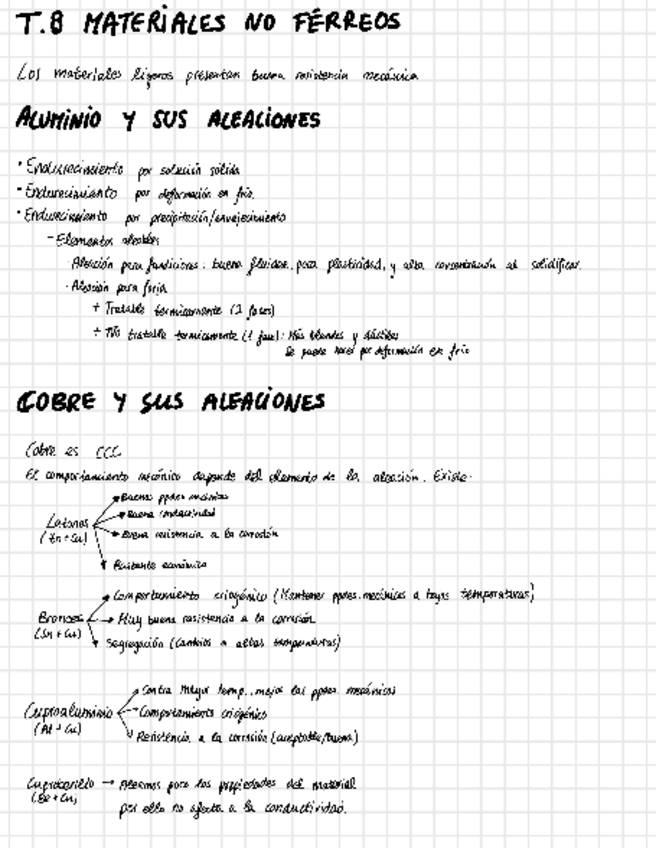 T.8 MATERIALES NO FÉRREOS
Los materiales ligeros presentan buena resistencia mecánica
ALUMINIO Y SUS ALEACIONES
· Endurecimiento por solución sólida
· Endurecimiento por deformación en frío.
· Endurecimiento por precipitación/envejecimiento
- Elementos aleables
· Aleación para fundiciones: buena fluidez, poca plasticidad, y alta concentración al solidificar.
· Aleación para forja
+ Tratable térmicamente (2 fases)
+ No tratable térmicamente (1 fase): Más blandas y dúctiles
Se puede hacer por deformación en frío
COBRE Y SUS ALEACIONES
Cobre es CCC
El comportamiento mecánico depende del elemento de la aleación. Existe:
Latones (Zn+Cu)
Buenas ppdes mecánicas
Buena conductividad
Buena resistencia a la corrosión
Bastante económico
Bronces (Sn+Cu)
Comportamiento criogénico (Mantener ppdes. mecánicas a bajas temperaturas)
Muy buena resistencia a la corrosión
Segregación (Cambios a altas temperaturas)
Cuproaluminio (Al+Cu)
Contra mayor temp., mejor las ppdes. mecánicas
Comportamiento criogénico
Resistencia a la corrosión (aceptable/buena)
(Be+Cu)
→ para las propiedades del material
por ello no afecta a la conductividad.